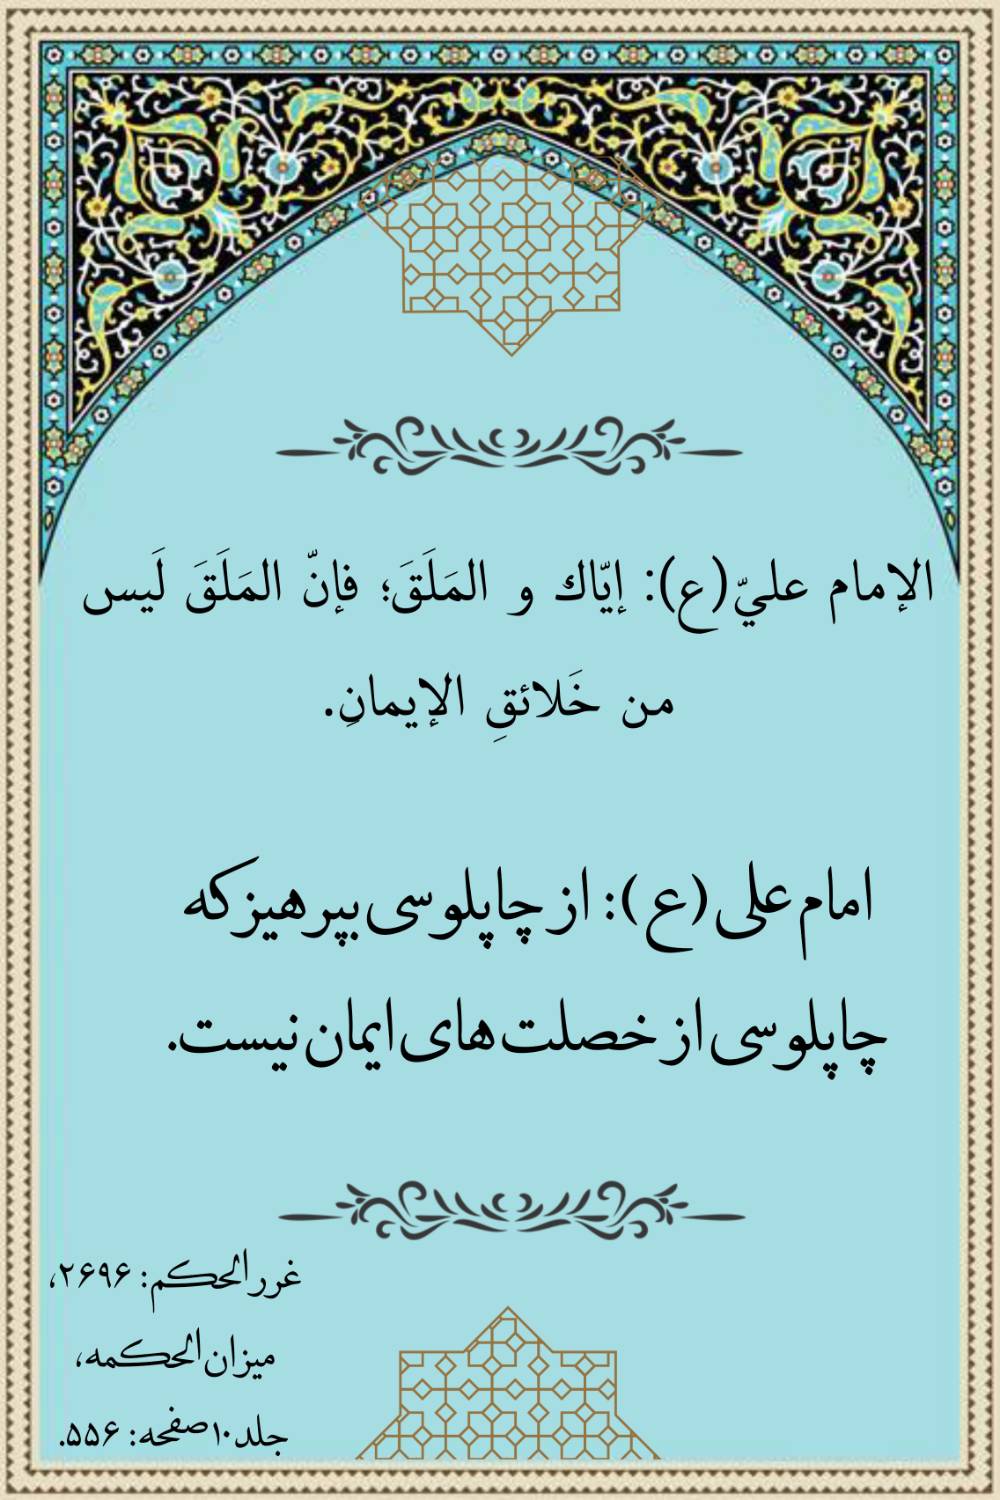 الإمام عليّ(ع): إيّاك و المَلَقَ؛ فإنّ المَلَقَ لَيس
من خَلائقِ الإيمانِ.
امام علی (ع): از چاپلوسی بپرهیز که
چاپلوسی از خصلت های ایمان نیست.
غررالحکم: ۲۶۹۶،
میزان الحکمه،
جلد۱۰ صفحه: ۵۵۶.